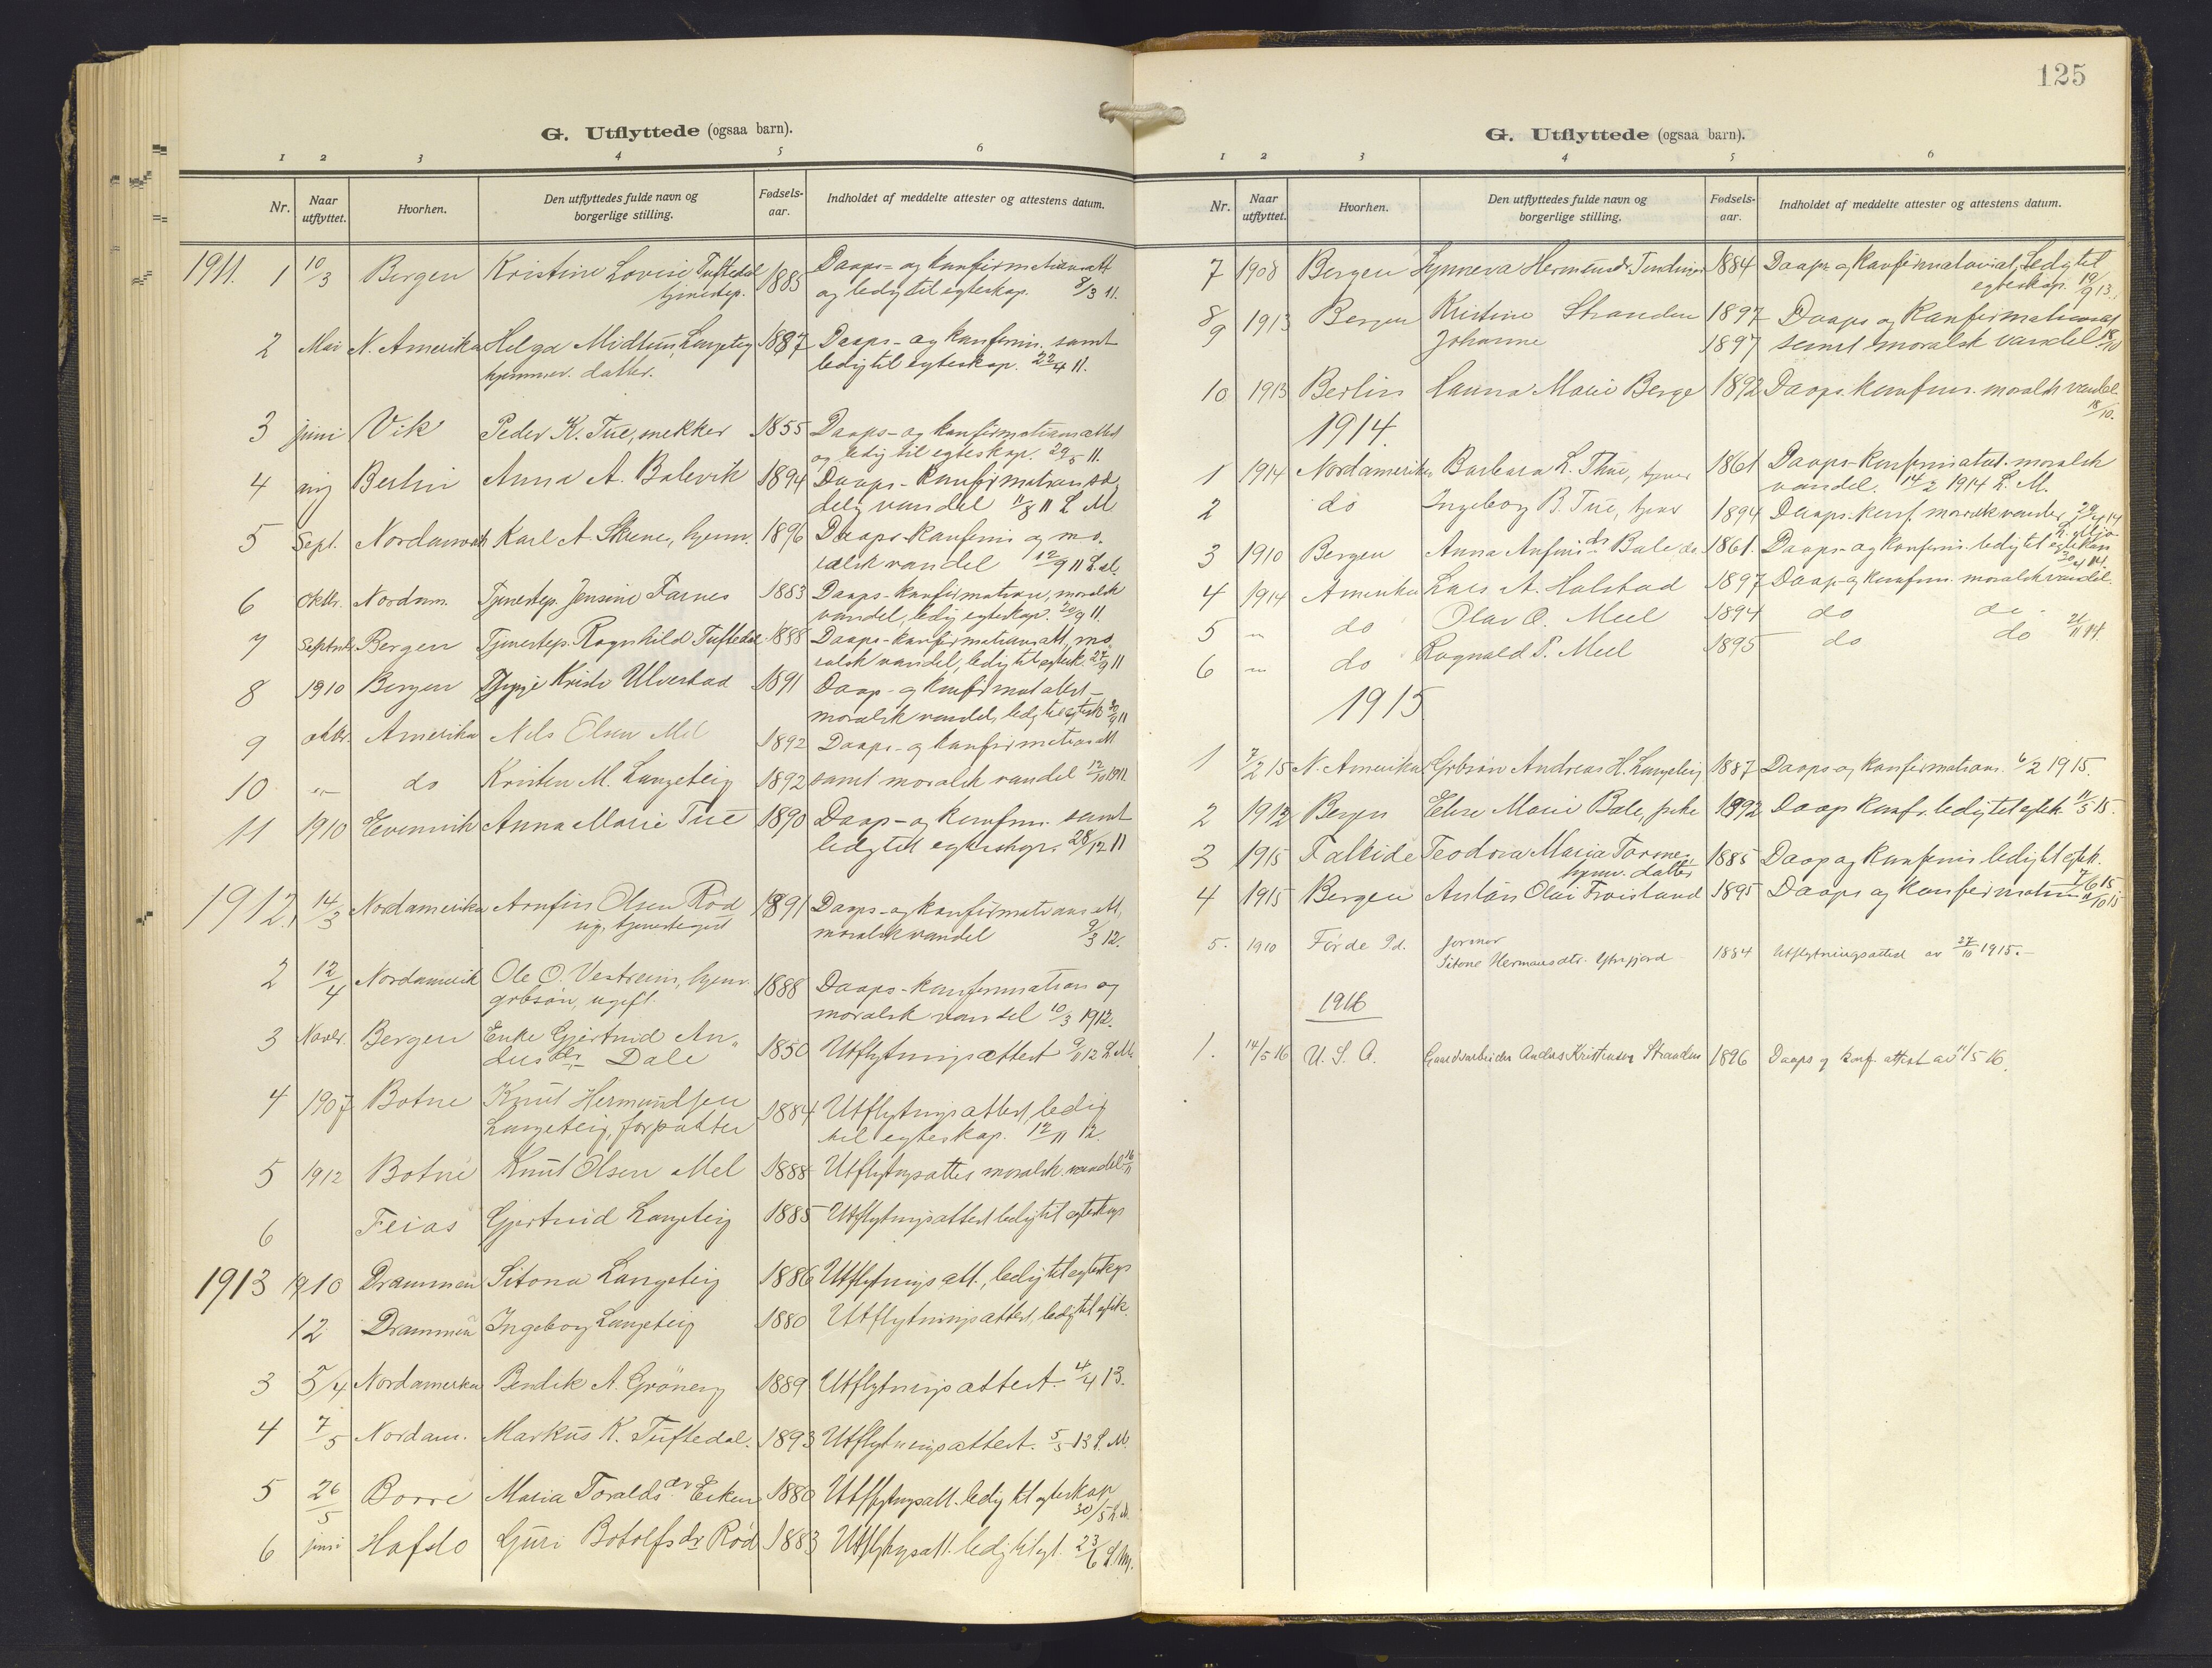 G. Utflyttede (ogsaa barn).
1 2 3 4 5 6
Nr. Naar utflyttet. Hvorhen. Den utflyttedes fulde navn og borgerlige stilling. Fødsels-aar. Indholdet af meddelte attester og attestens datum.
1911. 1 10/3 Bergen Kristine Lovise Tuftedal 1885 Daaps- og konfirmationsatt
tjenestep. og ledig til egteskap. 8/3 11.
2 Mai N. Amerika Helga Midtun Langeteig 1887 Daaps- og konfirm. samt
hjemmev. datter. ledig til egteskap. 22/4 11.
3 juni Vik Peder K. Tue, snekker 1855 Daaps- og konfirmationsattest
og ledig til egteskap. 29/5 11.
4 aug Berlin Anna A. Balevik 1894 Daaps- Konfirmation sæ
delig vandel 11/8 11 L M
5 Sept. Nordamerik Karl A. Skene, hjemv. 1896 Daaps-konfirm og mo-
ralsk vandel 12/9 11 L. M.
6 Oktbr. Nordam. Tjenestep. Jensine Farnes 1883 Daaps-konfirmation, moralsk
vandel, ledig egteskap. 20/9 11.
7 Septmbr Bergen Tjenestep. Ragnhild Tuftedal 1888 Daaps-konfirmationsatt, mo-
ralsk vandel, ledig til egtesk. 27/9 11
8 1910 Bergen Kristi Ulvestad 1891 Daap- og konfirmat attest-
moralsk vandel, ledig til egtesk 30/9 11
9 oktbr. Amerika Nels Olsen Mel 1892 Daaps- og konfirmation att
10 -"- do Kristen M. Langeteig 1892 samt moralsk vandel 12/10 1911
11 1910 Evenvik Anna Marie Tue 1890 Daap- og konfirm. samt
ledig til egteskap. 28/12 11
1912. 1 14/3 Nordamerika Arnfin Olsen Röd 1891 Daaps- og konfirmations att,
ug. tjenestegut moralsk vandel 9/3 12.
2 12/4 Nordamerik Ole O. Vestreim, hjemv. 1888 Daaps-konfirmation og
grbsön, ugift. moralsk vandel 10/3 1912.
3 Novbr. Bergen Enke Gjertrud An- 1850 Utflytningsattest 9/11 12 L. M.
dersdtr Dale
4 1907 Botne Knut Hermundsen 1884 Utflytningsattest, ledig
Langeteig, forpakter til egteskap. 12/11 12.
5 1912 Botne Knut Olsen Mel 1888 Utflytngsattes moralsk vandel 16/11
6 Feios Gjertrud Langeteig 1885 Utflytningsattest ledig til egteskap
1913 1910 Drammen Sitona Langeteig 1886 Utflytnings att., ledig til egteskap
12 Drammen Ingeborg Langeteig 1880 Utflytningsattest, ledig til egtsk.
3 5/4 Nordamerka Bendik A. Gröneng 1889 Utflytningsattest. 4/4 13.
4 7/5 Nordam. Markus K. Tuftedal. 1893 Utflytningsattest. 5/5 13 L. M.
5 26/5 Borre Maria Toraldsdr Eiken 1880 Utflytngsatt. ledig til egteskap
30/5 L. M.
6 juni Hafslo Guri Botolfsdr Röd 1883 Utflytngsatt. ledig til egt. 23/6 L. M.
125
G. Utflyttede (ogsaa barn).
1 2 3 4 5 6
Nr. Naar utflyttet. Hvorhen. Den utflyttedes fulde navn og borgerlige stilling. Fødsels-aar. Indholdet af meddelte attester og attestens datum.
7 1908 Bergen Synneva Hermundsdr. 1884 Daaps og konfirmationsat, Ledig til
egteskap. 19/9 13.
8/9 1913 Bergen Kristine Stranden 1897 Daaps og Konfirmationsat
Johanne 1897 samt moralsk vandel 18/10
10 1913 Berlin Hanna Marie Berge 1892 Daaps. konfirm. moralsk vandel
18/10.
1914.
1 1914 Nordamerika Barbara L. Thue, tjener 1861 Daaps-konfirmatat. moralsk
vandel. 14/2 1914 L. M.
2 do Ingeborg B. Tue, tjener 1894 Daaps-konf. moralsk vandel 29/4 14
3 1910 Bergen Anna Anfinsdr Bale do. 1861. Daaps- og konfirm. ledig til egteskap
30/4 14.
4 1914 Amerika Lars A. Halstad 1897 Daap- og konfirm. moralsk vandel.
5 " do Olav O. Meel 1894 do do -
6 " do Ragnvald P. Meel 1895 do do 21/11 14.
1915
1 7/2 15 N. Amerika Grbsön Andreas H. Langeteig 1887 Daaps og konfirmations. 6/2 1915.
2 1912 Bergen Elise Marie Bale, pike 1892 Daap konfr. ledig til egtsk. 11/5 15.
3 1915 Falleide Teodora Maria Tormes 1885 Daap og konfirm ledig til egtsk.
hjemv. datter 7/6 15
4 1915 Bergen Anton Olai Froistand 1895 Daaps og konfirmation /10 15
5. 1910 Förde Pd. Jormor
Sitone Hermansdtr. Ytrefjord 1884 Utflytningsattest av 27/10 1915.-
1916
1. 14/5 16 U. S. A. Gaardsarbeider Anders Kristensen Stranden 1896 Daaps og konf. attest av 11/5 16.